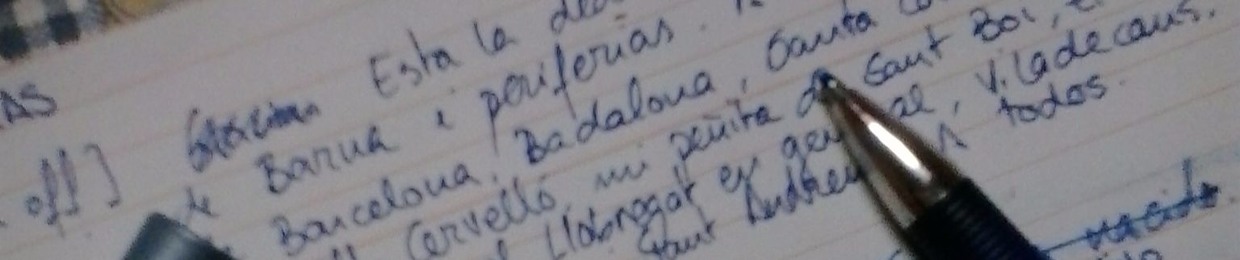 AS
Esta la
off] de Barna i periferias.
Barcelona, Badalona, Santa
Cervelló, mi peñita de Sant Boi,
Llobregat en general, Viladecans.
Sant Andreu A todos.